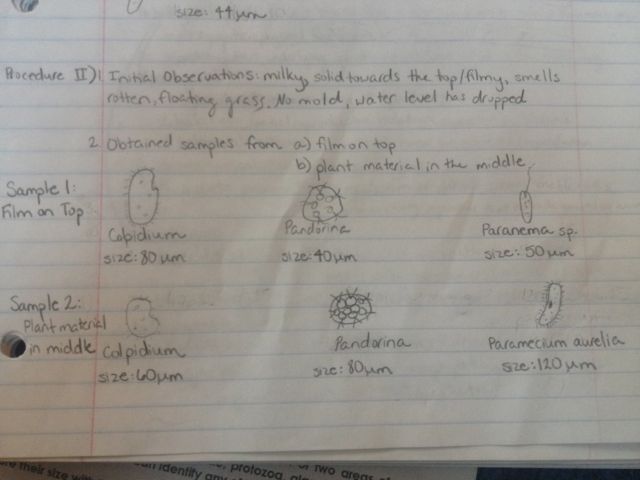 size: 44 µm
Procedure II) 1 Initial Observations: milky, solid towards the top/filmy, smells
rotten, floating grass. No mold, water level has dropped
2 Obtained samples from a) film on top
b) plant material in the middle
Sample 1:
Film on Top
Colpidium
size: 80 µm
Pandorina
size: 40 µm
Paranema sp.
size: 50 µm
Sample 2:
Plant material
in middle
Colpidium
size: 60 µm
Pandorina
size: 80 µm
Paramecium aurelia
size: 120 µm
their size
identify any
protozoa,
or two areas